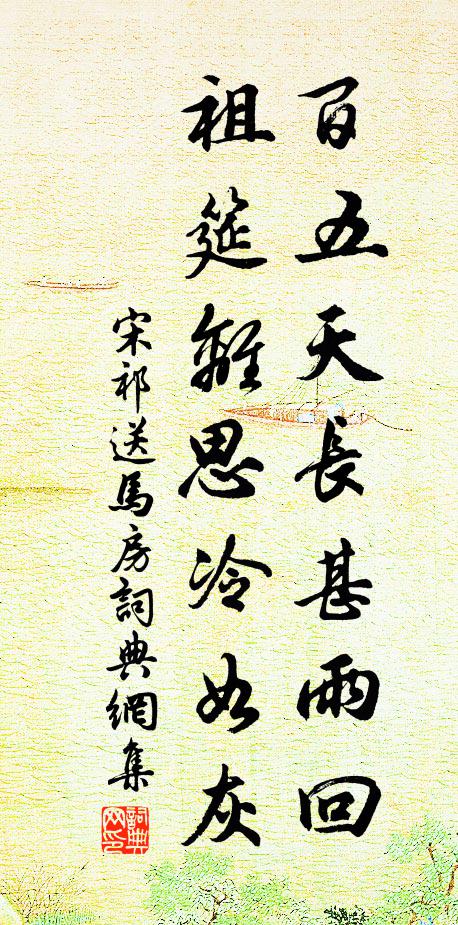 百五天長甚雨回
祖筵離思冷如灰
宋祁送馬房詞典網集
詞典網印